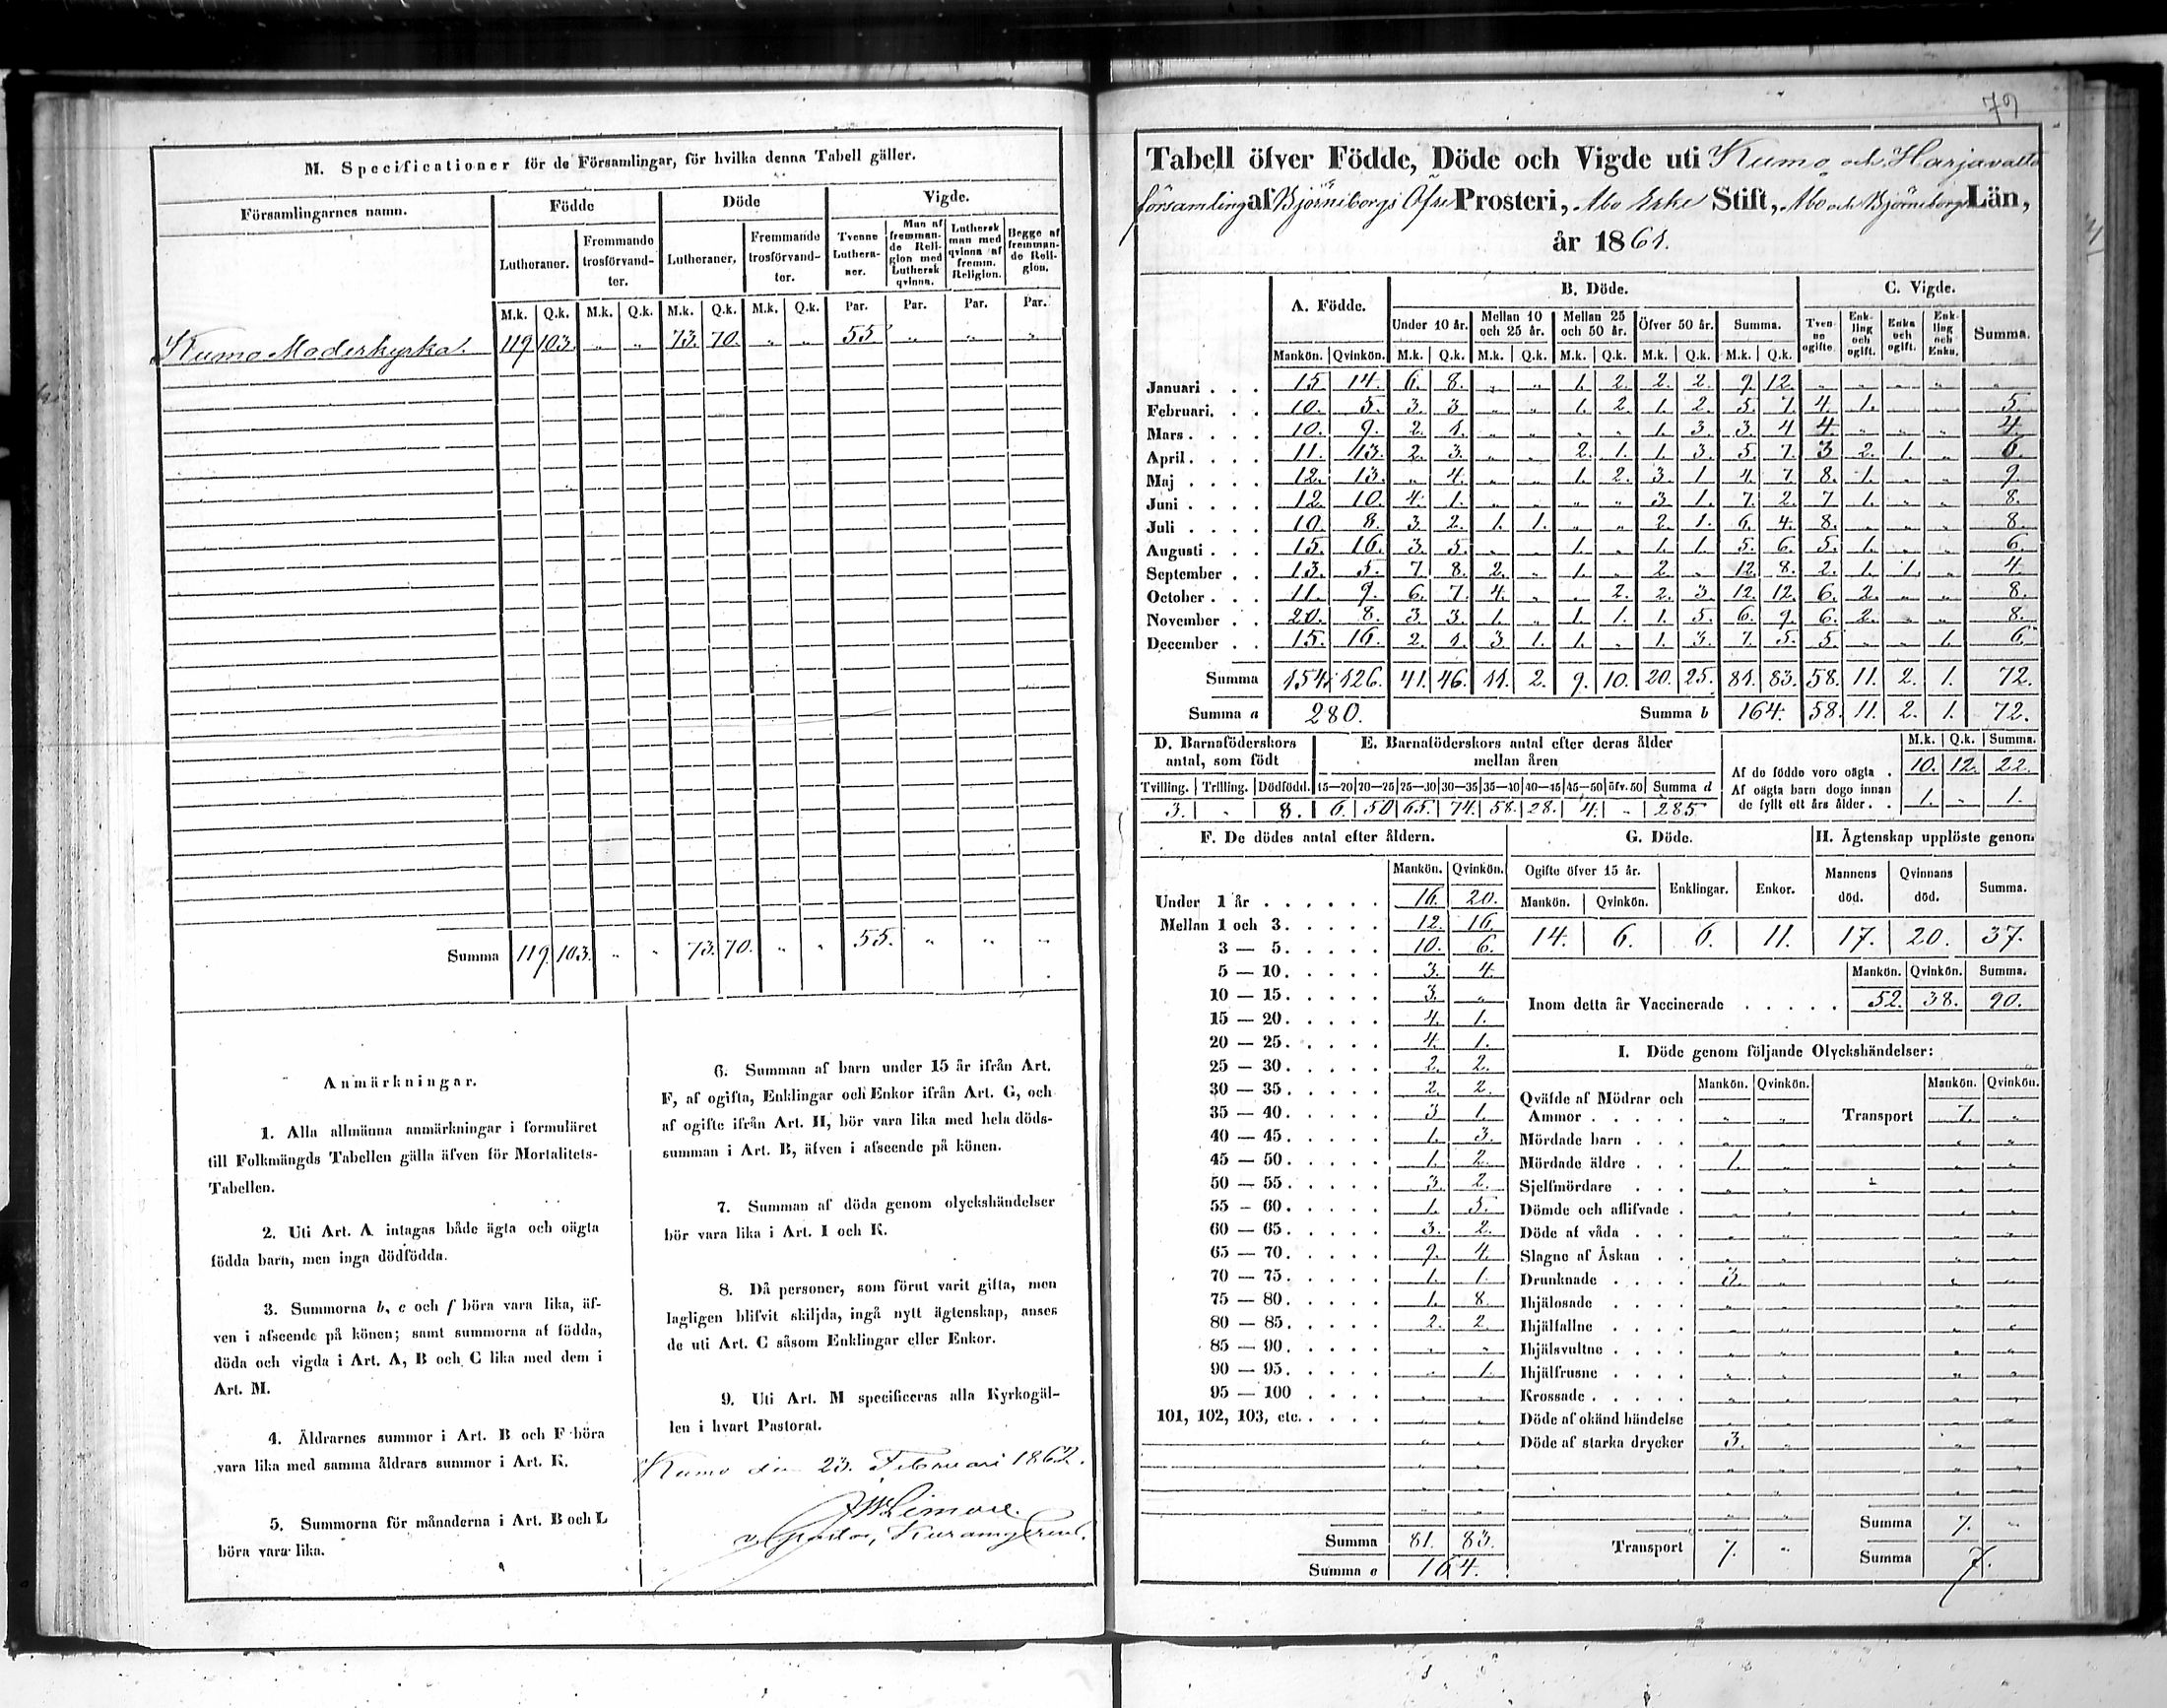 M. Specificationer för de Församlingar, för hvilka denna Tabell gäller.
Församlingarnes namn. | Födde | Döde | Vigde.
Lutheraner. | Fremmande trosförvandter. | Lutheraner. | Fremmande trosförvandter. | Tvenne Lutheraner. | Man af fremmande Religion med Luthersk qvinna. | Luthersk man med qvinna af fremm. Religion. | Begge af fremmande Religion.
M.k. | Q.k. | M.k. | Q.k. | M.k. | Q.k. | M.k. | Q.k. | Par. | Par. | Par. | Par.
Kumo Moderkyrka. | 119 | 103. | „ | „ | 73. | 70. | „ | „ | 55 | „ | „ | „
Summa | 119. | 103. | „ | „ | 73. | 70. | „ | „ | 55. | „ | „ | „
Anmärkningar.
1. Alla allmänna anmärkningar i formuläret
till Folkmängds Tabellen gälla äfven för Mortalitets-
Tabellen.
2. Uti Art. A intagas både ägta och oägta
födda barn, men inga dödfödda.
3. Summorna b, c och f böra vara lika, äf-
ven i afseende på könen; samt summorna af födda,
döda och vigda i Art. A, B och C lika med dem i
Art. M.
4. Åldrarnes summor i Art. B och F böra
vara lika med samma åldrars summor i Art. K.
5. Summorna för månaderna i Art. B och L
böra vara lika.
6. Summan af barn under 15 år ifrån Art.
F, af ogifta, Enklingar och Enkor ifrån Art. G, och
af ogifte ifrån Art. H, bör vara lika med hela döds-
summan i Art. B, äfven i afseende på könen.
7. Summan af döda genom olyckshändelser
bör vara lika i Art. I och K.
8. Då personer, som förut varit gifta, men
lagligen blifvit skiljda, ingå nytt ägtenskap, anses
de uti Art. C såsom Enklingar eller Enkor.
9. Uti Art. M specificeras alla Kyrkogäl-
len i hvart Pastorat.
Kumo den 23. Februari 1862.
79
Tabell öfver Födde, Döde och Vigde uti Kumo och Harjavalta
församling af Björneborgs Öfre Prosteri, Åbo Erke Stift, Åbo och Björneborgs Län,
år 1861.
A. Födde. | B. Döde. | C. Vigde.
Under 10 år. | Mellan 10 och 25 år. | Mellan 25 och 50 år. | Öfver 50 år. | Summa. | Tvenne ogifte. | Enkling och ogift. | Enka och ogift. | Enkling och Enka. | Summa.
Mankön. | Qvinkön. | M.k. | Q.k. | M.k. | Q.k. | M.k. | Q.k. | M.k. | Q.k. | M.k. | Q.k.
Januari | 15 | 14. | 6. | 8. | „ | „ | 1. | 2. | 2. | 2. | 9. | 12. | „ | „ | „ | „ | „
Februari. | 10. | 5. | 3. | 3 | „ | „ | 1. | 2. | 1. | 2. | 5. | 7. | 4. | 1. | „ | „ | 5.
Mars | 10. | 9. | 2. | 1. | „ | „ | „ | „ | 1. | 3. | 3. | 4 | 4. | „ | „ | „ | 4.
April | 11. | 13. | 2. | 3. | „ | „ | 2. | 1. | 1. | 3. | 5. | 7. | 3 | 2. | 1. | „ | 6.
Maj | 12. | 13. | „ | 4. | „ | „ | 1. | 2. | 3. | 1 | 4. | 7 | 8. | 1. | „ | „ | 9.
Juni | 12. | 10. | 4. | 1. | „ | „ | „ | „ | 3 | 1. | 7. | 2. | 7 | 1. | „ | „ | 8.
Juli | 10. | 8. | 3. | 2. | 1. | 1. | „ | „ | 2. | 1. | 6. | 4. | 8. | „ | „ | „ | 8.
Augusti | 15. | 16. | 3. | 5. | „ | „ | 1. | „ | 1. | 1. | 5. | 6. | 5. | 1. | „ | „ | 6.
September | 13. | 5. | 7. | 8. | 2. | „ | 1. | „ | 2. | „ | 12. | 8. | 2. | 1. | 1. | „ | 4
October | 11. | 9. | 6. | 7. | 4. | „ | „ | 2. | 2. | 3. | 12. | 12. | 6. | 2. | „ | „ | 8.
November | 20. | 8. | 3. | 3. | 1. | „ | 1. | 1. | 1. | 5. | 6. | 9. | 6. | 2. | „ | „ | 8.
December | 15. | 16. | 2. | 1. | 3. | 1. | 1. | „ | 1. | 3. | 7. | 5. | 5. | „ | „ | 1. | 6.
Summa | 154. | 126. | 41. | 46. | 11. | 2. | 9. | 10. | 20. | 25. | 81. | 83. | 58. | 11. | 2. | 1. | 72.
Summa a | 280. | Summa b | 164. | 58. | 11. | 2. | 1. | 72.
D. Barnaföderskors antal, som födt | E. Barnaföderskors antal efter deras ålder mellan åren | M.k. | Q.k. | Summa.
Af de födde voro oägta . | 10. | 12. | 22.
Af oägta barn dogo innan de fyllt ett års ålder. . | 1. | „ | 1.
Tvilling. | Trilling. | Dödfödd. | 15—20 | 20—25 | 25—30 | 30—35 | 35—40 | 40—45 | 45—50 | öfv. 50 | Summa d
3. | „ | 8. | 6. | 50 | 65. | 74. | 58. | 28. | 4. | „ | 285
F. De dödes antal efter åldern.
Mankön. | Qvinkön.
Under 1 år | 16. | 20.
Mellan 1 och 3. | 12. | 16.
3 — 5. | 10. | 6.
5 — 10. | 3. | 4.
10 — 15. | 3. | „
15 — 20. | 4. | 1.
20 — 25. | 4. | 1.
25 — 30. | 2. | 2.
30 — 35. | 2. | 2
35 — 40. | 3 | 1.
40 — 45. | 1. | 3.
45 — 50. | 1. | 2.
50 — 55. | 3. | 2.
55 — 60. | 1. | 5.
60 — 65. | 3. | 2.
65 — 70. | 9. | 4.
70 — 75. | 1. | 1.
75 — 80. | 1. | 8.
80 — 85. | 2. | 2
85 — 90. | „ | „
90 — 95. | „ | 1.
95 — 100 | „ | „
101, 102, 103, etc. | „ | „
Summa | 81. | 83.
Summa e | 164.
G. Döde. | H. Ägtenskap upplöste genom
Ogifte öfver 15 år. | Enklingar. | Enkor. | Mannens död. | Qvinnans död. | Summa.
Mankön. | Qvinkön.
14. | 6. | 6. | 11. | 17. | 20. | 37.
Mankön. | Qvinkön. | Summa.
Inom detta år Vaccinerade | 52. | 38. | 90.
I. Döde genom följande Olyckshändelser:
Mankön. | Qvinkön. | Mankön. | Qvinkön.
Qväfde af Mödrar och Ammor | „ | „ | Transport | 7. | „
Mördade barn | „ | „
Mördade äldre | 1. | „
Sjelfmördare | „ | „
Dömde och aflifvade . | „ | „
Döde af våda | „ | „
Slagne af Åskan | „ | „
Drunknade | 3. | „
Ihjälosade | „ | „
Ihjälfallne | „ | „
Ihjälsvultne | „ | „
Ihjälfrusne | „ | „
Krossade | „ | „
Döde af okänd händelse | „ | „
Döde af starka drycker | 3. | „
Summa | 7. | „
Transport | 7. | „ | Summa | 7.